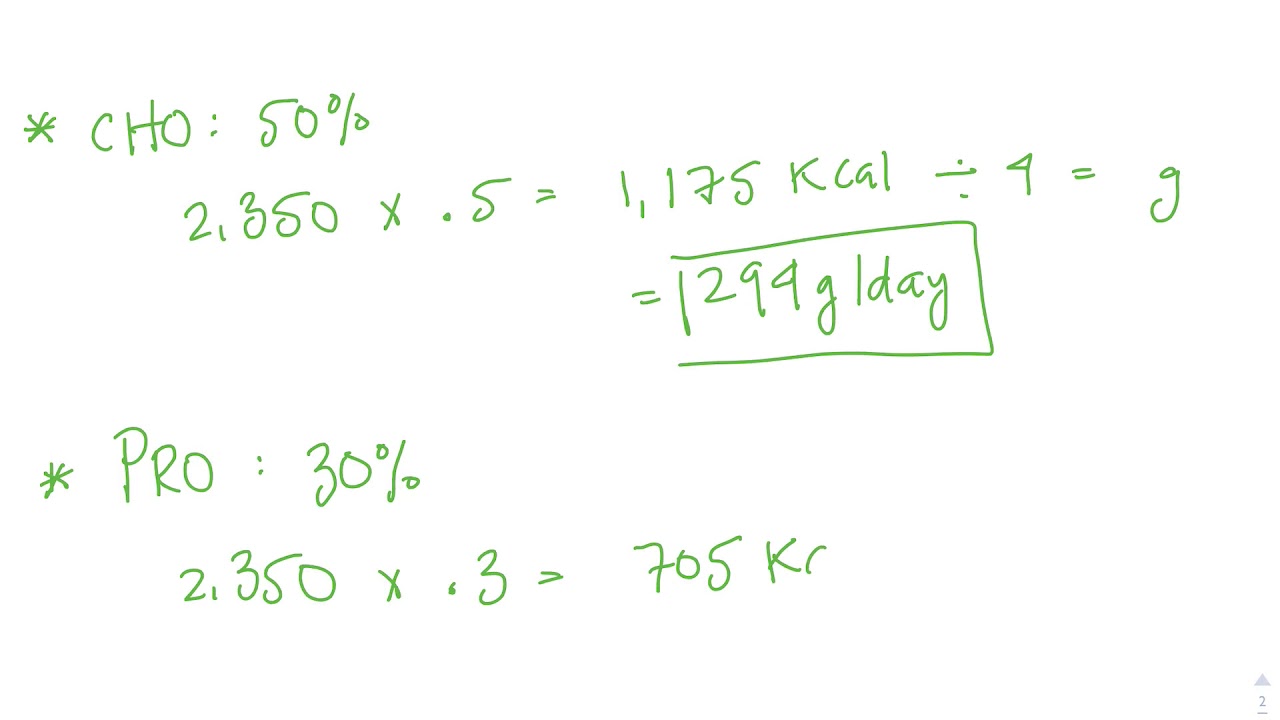 * CHO: 50%
2,350 x .5 = 1,175 Kcal ÷ 4 = g
= 294g/day
* PRO: 30%
2,350 x .3 = 705 Kc
2